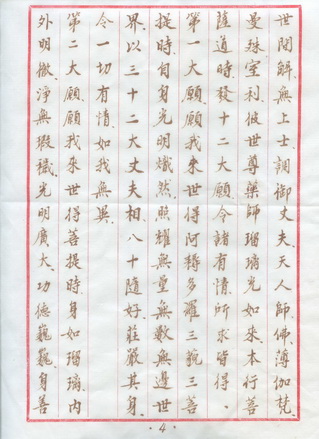 世間解無上士調御丈夫天人師佛薄伽梵、
曼殊室利彼世尊藥師瑠璃光如來本行菩
薩道時發十二大願令諸有情所求皆得、
第一大願願我來世得阿耨多羅三藐三菩
提時自身光明熾然照耀無量無數無邊世
界以三十二大丈夫相八十隨好莊嚴其身、
令一切有情如我無異、
第二大願願我來世得菩提時身如瑠璃內
外明徹淨無瑕穢光明廣大、功德巍巍身善
·4·